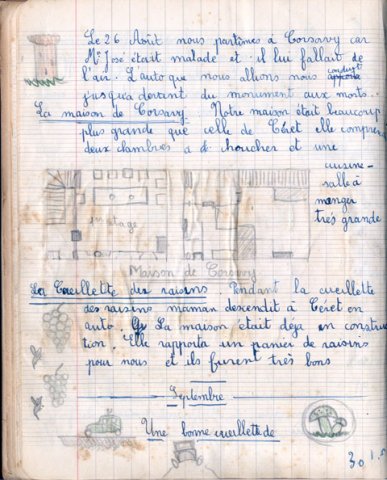 Le 26 Août nous partîmes à Corsavy car
Mr José était malade et il lui fallait de
l'air. L'auto que nous allions nous conduit
jusqu'a devant du monument aux morts.
La maison de Corsavy : Notre maison était beaucoup
plus grande que celle de Céret elle comprend
deux chambres a choucher et une
cuisine -
salle à
manger
très grande
1er étage
Maison de Corsavy
La Cueillette des raisins. Pendant la cueillette
des raisins maman descendit à Céret en
auto. La maison était déja en construc
tion. Elle rapporta un panier de raisins
pour nous et ils furent très bons
Septembre
Une bonne cueillette de
30